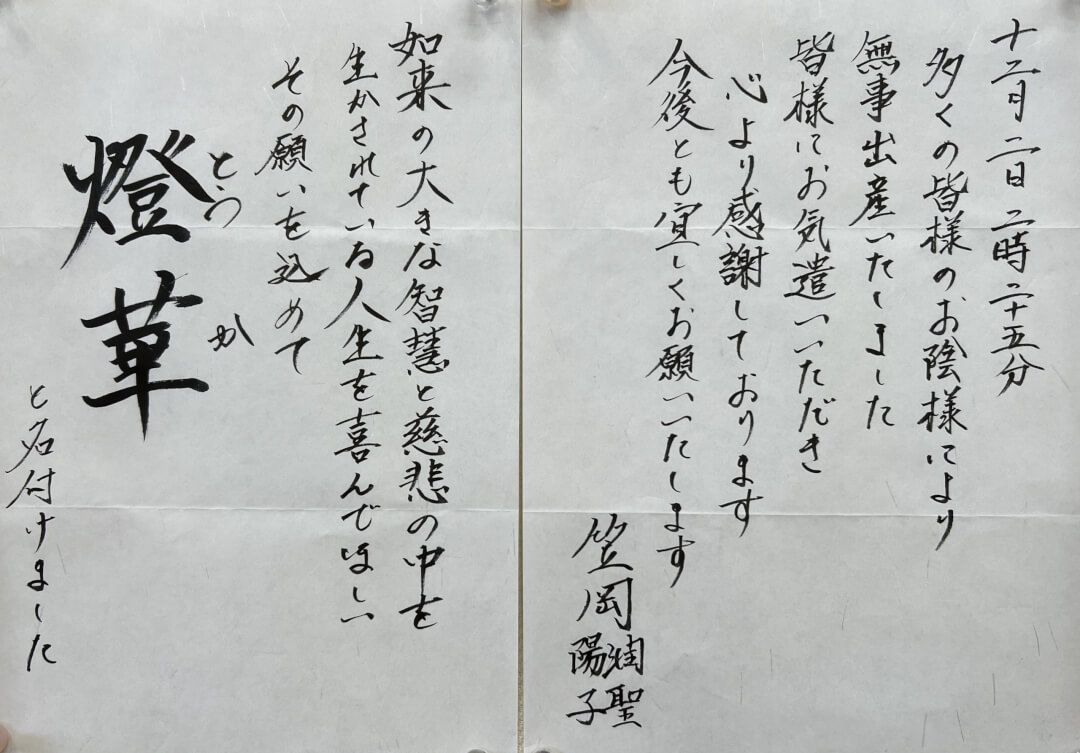 十二月二日二時二十五分
多くの皆様のお陰様により
無事出産いたしました
皆様にお気遣いいただき
心より感謝しております
今後とも宜しくお願いいたします
笠岡潤聖
陽子
如来の大きな智慧と慈悲の中を
生かされている人生を喜んでほしい
その願いを込めて
とうか
燈華
と名付けました